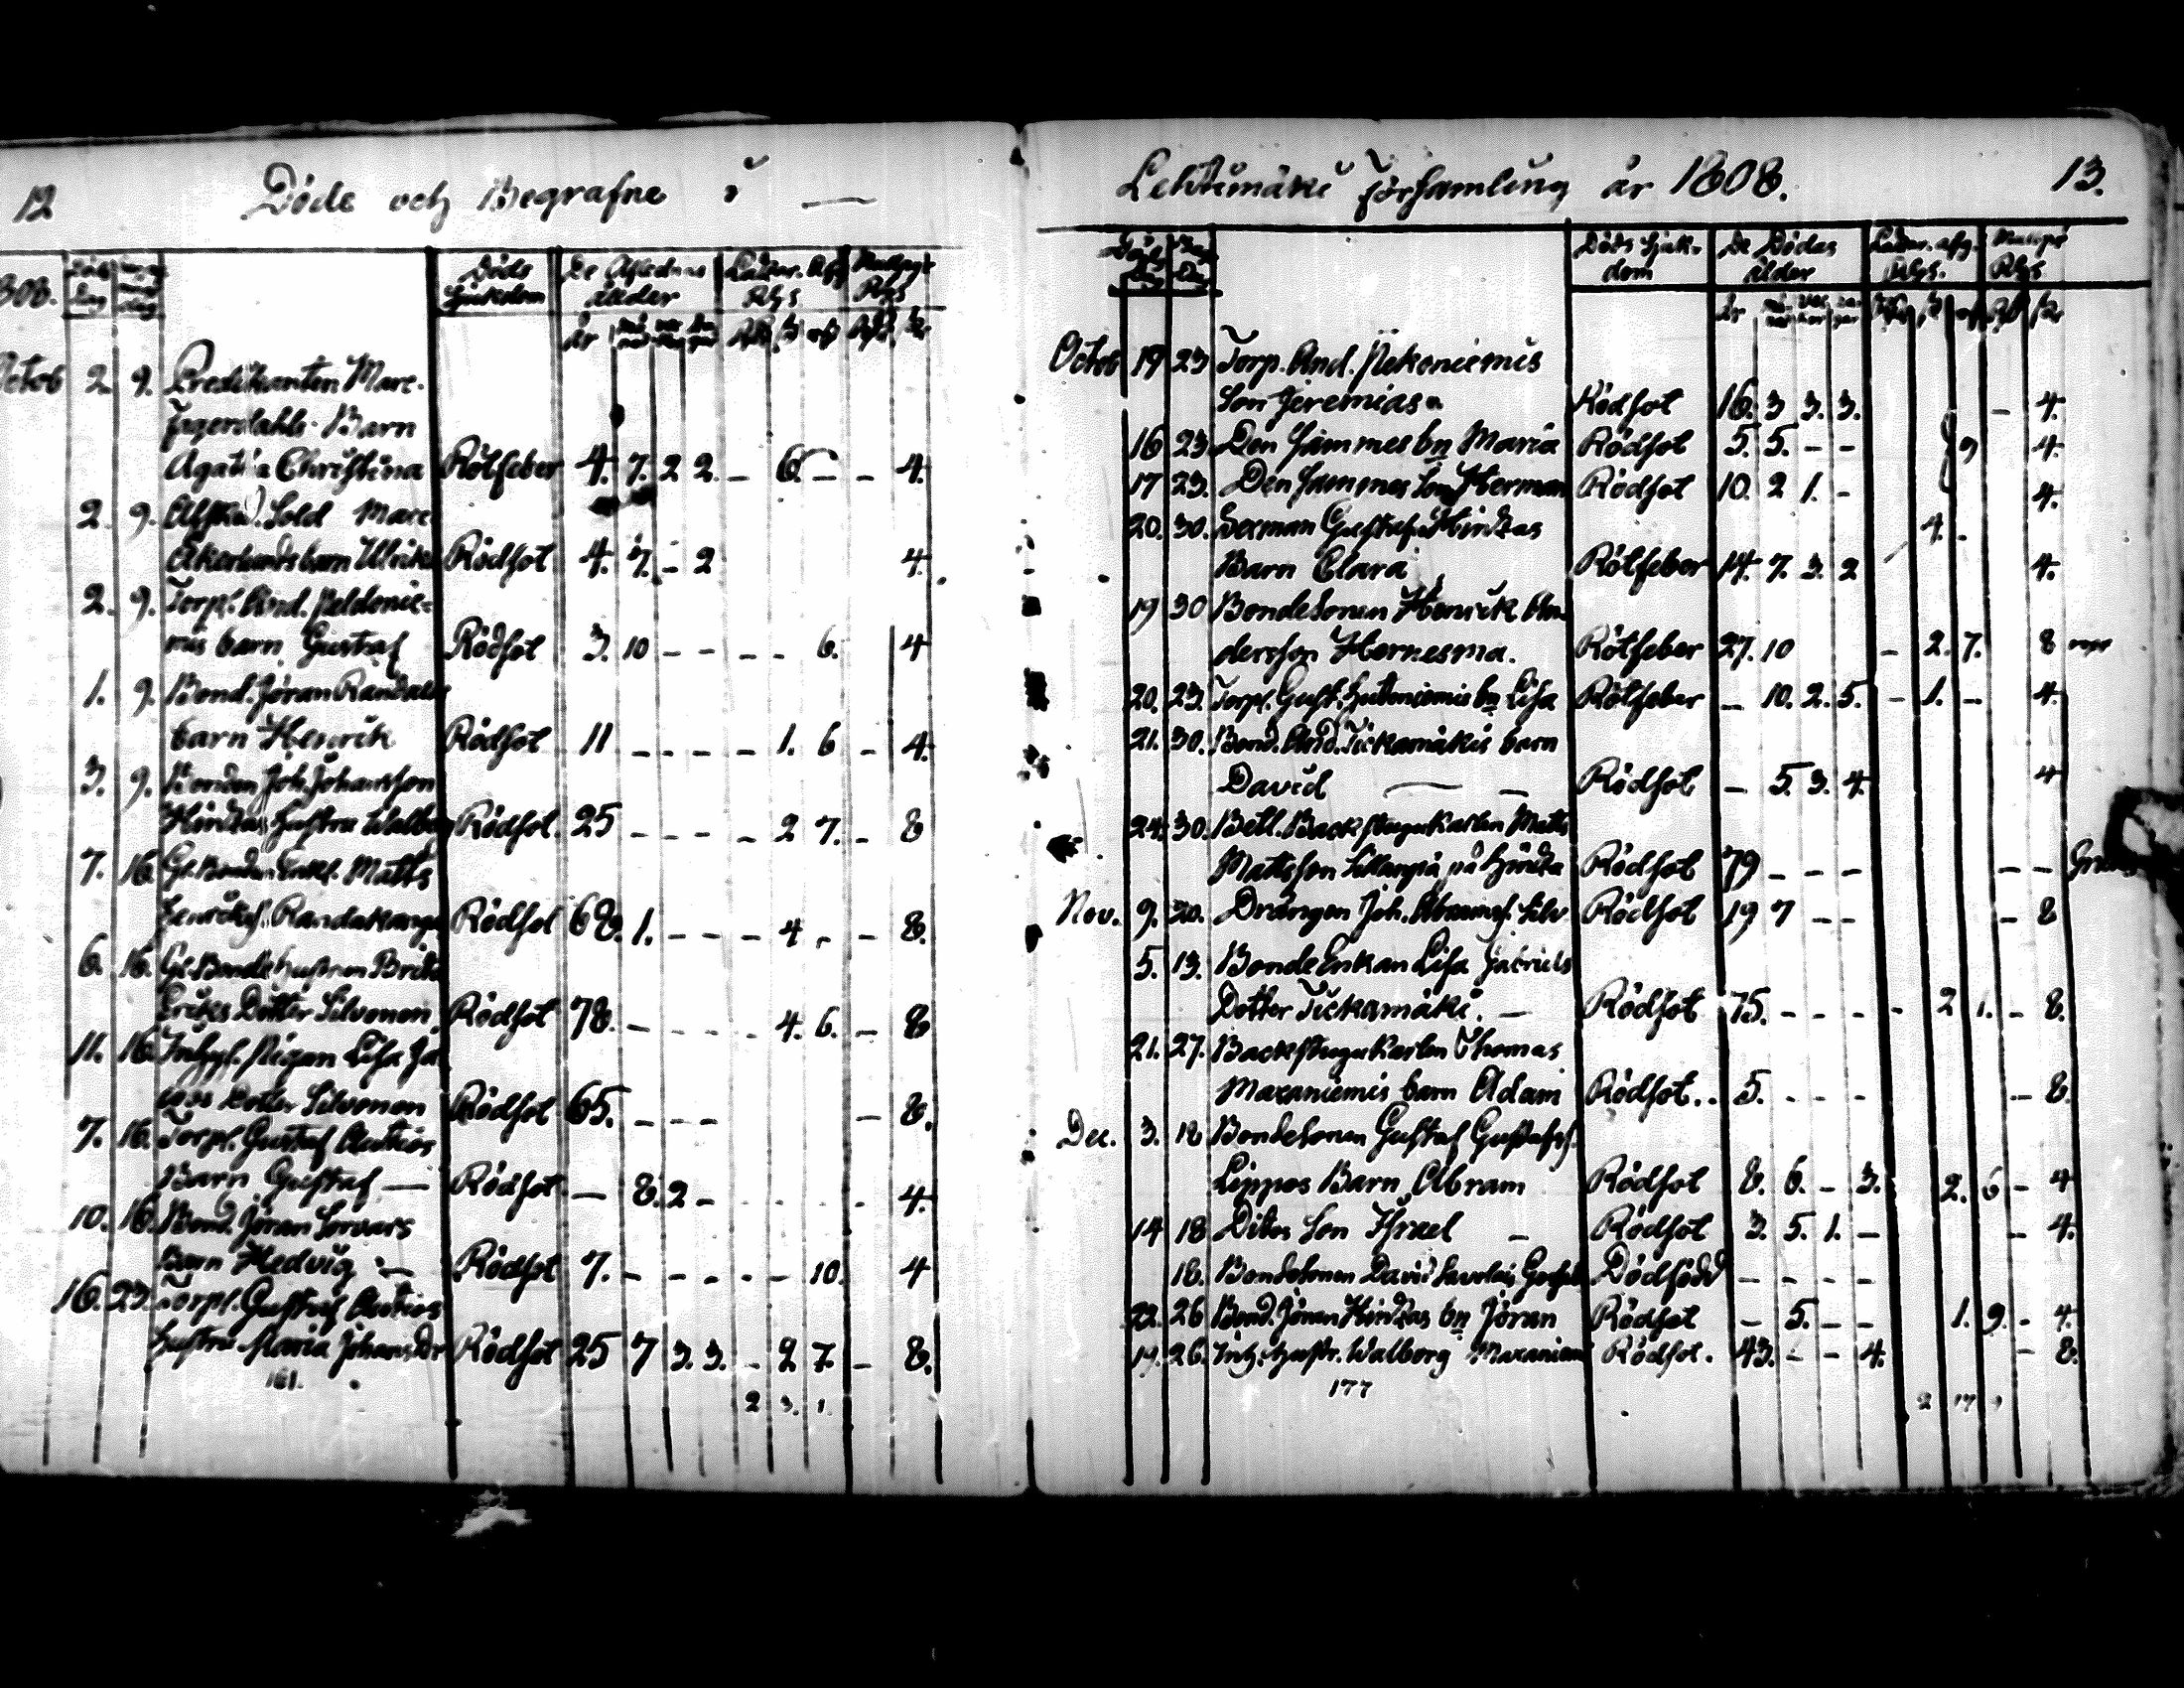 12 Döde och Begrafne i —
Döds dag
Döds Sjukdom De Aflednas ålder
år
Octob 2. 9. Predikanten Marc.
Fagerdahls Barn
Agata Christina Rötfeber 4. 7. 2 2. – 6. – – 4.
2. 9. Afsked. Sold Marc
Åkerlunds barn Ulrika Rödsot 4. 7. – 2 4.
2. 9. Torp. And. Peldonie-
mis barn Gustaf Rödsot 3. 10 – – – – 6. 4
1. 9. Bond. Jöran Randalas
barn Henrik Rödsot 11 – – – – 1. 6 – 4.
3. 9. Bonden Joh. Johansson
Hindas hustru Walborg Rödsot. 25 – – – – 2 7. – 8
7. 16. Gl. Bonden Enkl. Matts
Henricks. Randakanga Rödsot 68. 1. – – – 4 – – 8.
6. 16. Gl. Bonde hustrun Brita
Ericks Dotter Silvonen Rödsot 78. – – – – 4. 6. – 8
11. 16. Inhys. Pigan Lisa
Dotter Silvonen Rödsot 65. – – – – 8.
7. 16. Torp. Gustaf Autios
Barn Gustaf — Rödsot – 8. 2 – – – – 4.
10. 16. Bond. Jöran Sorvars
Barn Hedvig — Rödsot 7. – – – – – 10. 4
16. 23. Torp. Gustaf Autios
hustru Maria Johans Dr Rödsot 25 7 3. 3. – 2 7. – 8.
161.
2 3. 1.
Lehtimäki Församling år 1808. 13.
Döds Sjuk-
dom De Dödas ålder
år
Octob 19 23 Torp. And. Pekoniemis
Son Jeremias Rödsot 16. 3 3. 3. – 4.
16 23. Den sammes bn Maria Rödsot 5. 5. – – 9 4.
17 23. Den sammes Son Herman Rödsot 10. 2 1. – 4.
20. 30. Sexman Gustaf Hindas 4. –
Barn Clara Rötfeber 14. 7. 3. 2 4.
19 30 Bondesonen Henrik An-
dersson Hernesma. Rötfeber 27. 10 – 2. 7. 8
20. 23. Torp. Gust. Huttoniemis bn Lisa Rötfeber – 10. 2. 5. – 1. – 4.
21. 30. Bond. And. Tickamäkis barn
David — – Rödsot – 5. 3. 4. 4
24. 30. Betl. Backstugukarlen Matts
Mattsson på Hinda Rödsot 79 – – – – –
Nov. 9. 20. Drängen Joh. Abramss. Silv Rödsot 19 7 – – – 8
5. 13. Bonde Enkan Lisa Gabriels
Dotter Tickamäki. – Rödsot 75. – – – – 2 1. – 8.
21. 27. Backstugukarlen Thomas
Maxaniemis barn Adam Rödsot. 5. – – – – 8.
Dec. 3. 18 Bondesonen Gustaf Gustafss.
Lippos Barn Abram Rödsot 8. 6. – 3. 2. 6 – 4
14 18 Ditos Son Israel – Rödsot 3. 5. 1. – – 4.
18. Bondesonen David Savolais Dödfödd – – – –
22. 26 Bond. Jöran Hindas bn Jöran Rödsot – 5. – – 1. 9. – 4.
19. 26. Inh. Hustr. Walborg Maxaniemi Rödsot. 43. – – 4. – 8.
177
2 17